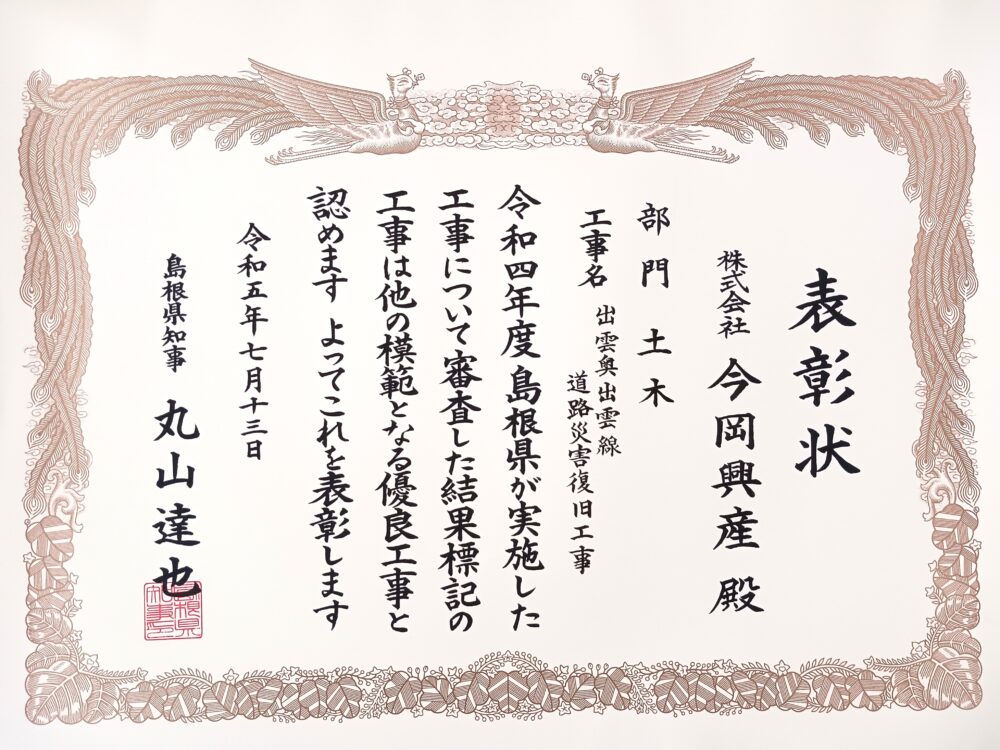 表彰状
株式会社 今岡興産 殿
部門 土木
工事名 出雲奥出雲線
道路災害復旧工事
令和四年度島根県が実施した
工事について審査した結果標記の
工事は他の模範となる優良工事と
認めます よってこれを表彰します
令和五年七月十三日
島根県知事 丸山達也
島根県
知事之印